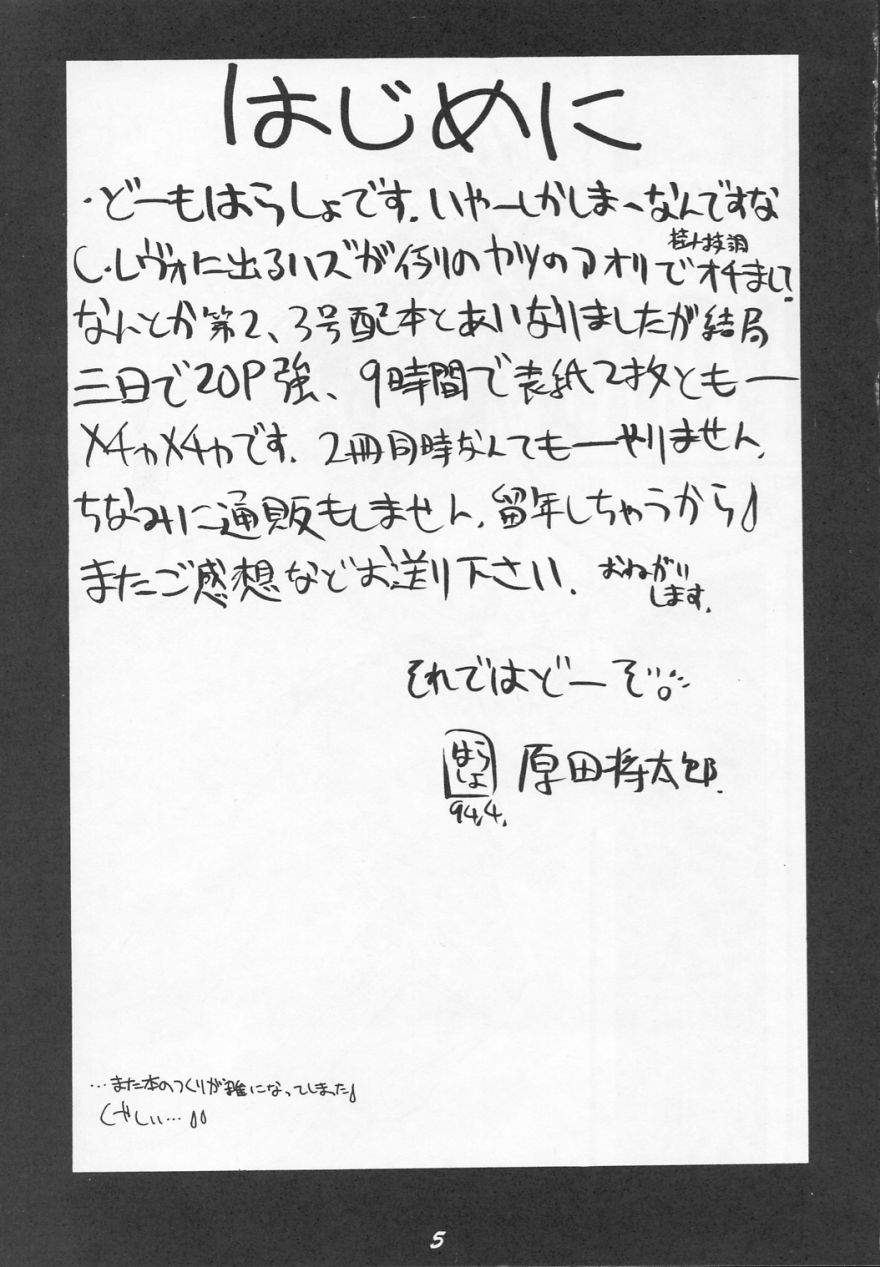 はじめに
・どーもはらしょです．いやーしかしまーなんですな
C・レヴォに出るハズが例のヤツのアオリでオチまして
桂小枝調
なんとか第2、3号配本とあいなりましたが結局
三日で20P強、9時間で表紙2枚ともー
メチャメチャです．2冊同時なんてもーやりません．
ちなみに通販もしません．留年しちゃうから♪
またご感想などお送り下さい．おねがい
します．
それではどーぞ。
はらしょ
原田将太郎．
94.4.
…また本のつくりが雑になってしまった♪
くやしい…♪♪
5